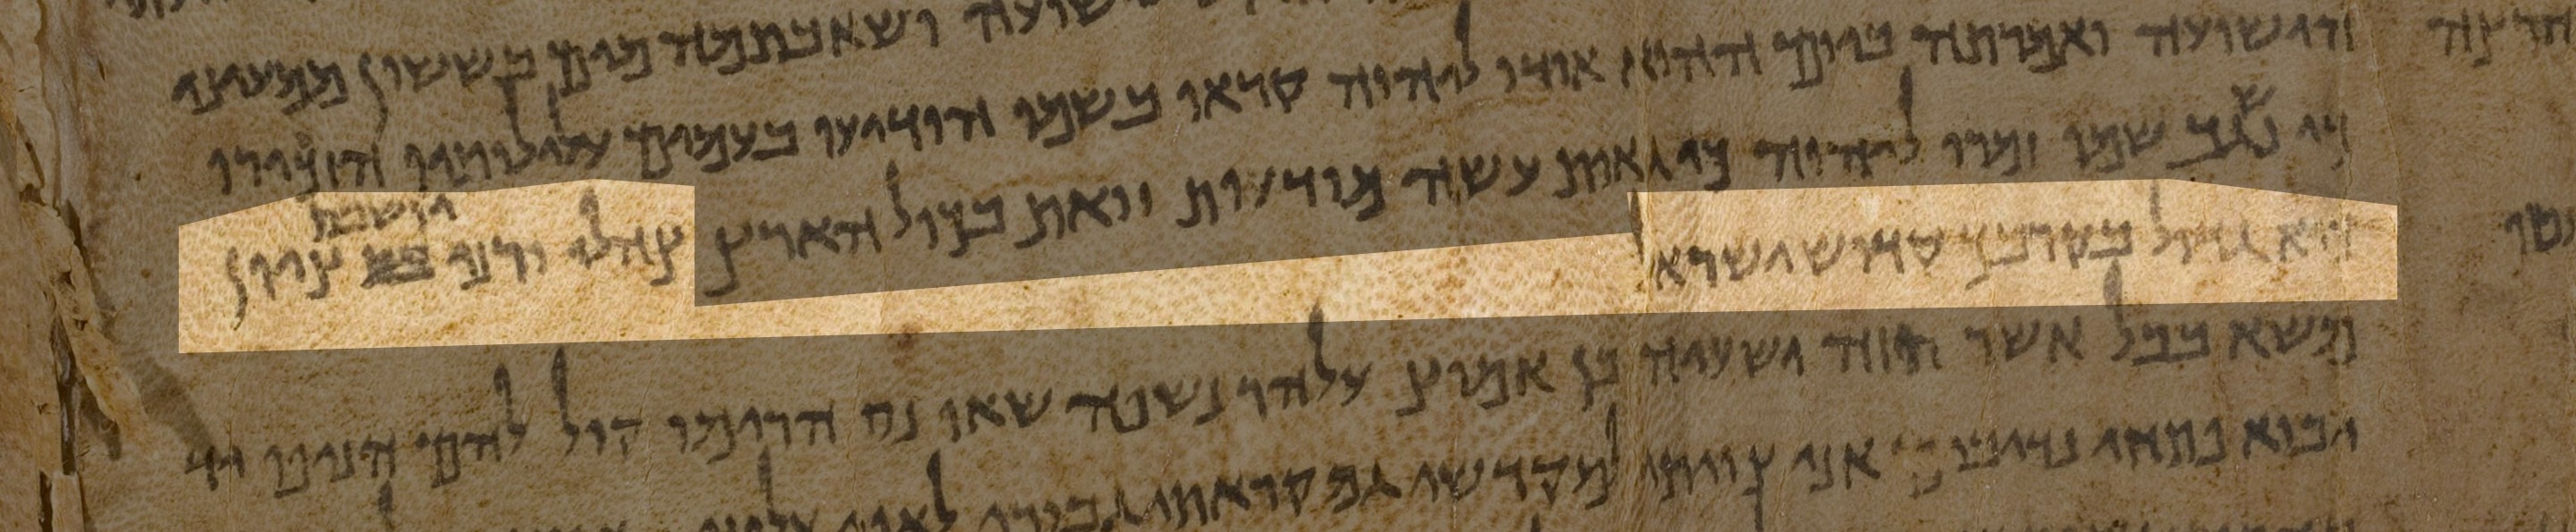 ושאבתמה מים בששון ממעיני
הישועה ואמרתה ביום ההוא אודו ליהוה קראו בשמו הודיעו בעמים עלילותיו הזכירו
כי נשגב שמו זמרו ליהוה כי גאות עשה מודעות זואת בכול הארץ צהלי ורני בת ציון
יושבת
כיא גדול בקרבך קדוש ישראל
משא בבל אשר חזה ישעיה בן אמוץ על הר נשפה שאו נס הרימו קול להם הניפו יד
יבוא פתחי נדיבים אני צויתי למקדשי גם קראתי גבורי